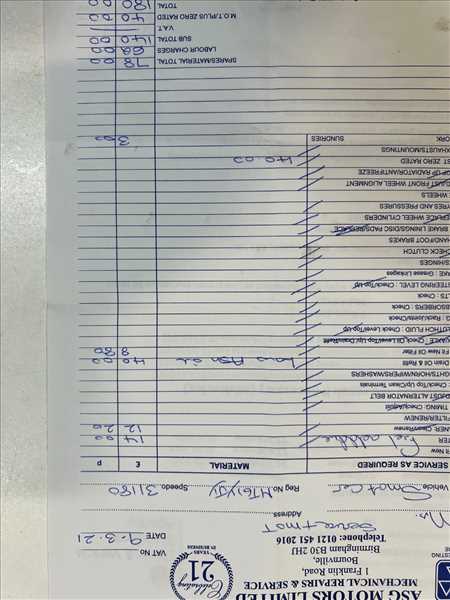 ASG MOTORS LIMITED
MECHANICAL REPAIRS & SERVICE
1 Franklin Road,
Bournville,
Birmingham B30 2HJ
Telephone: 0121 451 2016
Celebrating
21
YEARS
IN BUSINESS
VAT NO.
DATE 9-3-21
Service + mot
Address
Vehicle Smart Car Reg No. Speedo. 31180
SERVICE AS REQUIRED MATERIAL £ p
Fuel additive 14 00
12 20
FILTER/RENEW
TIMING : Check/Adjust
ADJUST ALTERNATOR BELT
Check/Top Up/Clean Terminals
LIGHTS/HORN/WIPERS/WASHERS
Drain Oil & Refill Low Ash oil 40 00
Fit New Oil Filter 8 80
Check Oil Level/Top Up/Drain/Refill
CLUTCH FLUID : Check Level/Top Up
Rack/Joints/Check
ABSORBERS : Check
BELTS : Check
STEERING LEVEL : Check/Top Up
BRAKE : Grease Linkages
HINGES
CHECK CLUTCH
HAND/FOOT BRAKES
BRAKE LININGS/DISC PADS/REPLACE
REPLACE WHEEL CYLINDERS
TYRES AND PRESSURES
WHEELS
ADJUST FRONT WHEEL ALIGNMENT
TOP UP RADIATOR/ANTIFREEZE
TEST ZERO RATED 40.00
EXHAUSTS/MOUNTINGS
WORK SUNDRIES 3 00
SPARES/MATERIAL TOTAL 78 00
LABOUR CHARGES 62 00
SUB TOTAL 140 00
V.A.T.
M.O.T./PLUS ZERO RATED 40 00
TOTAL 180 00